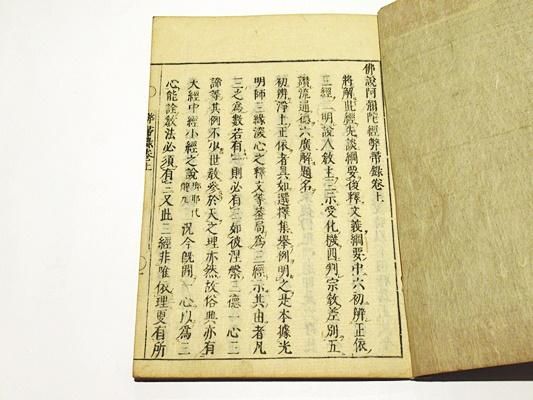 佛說阿彌陀經弊帚錄卷上
將解此經先談綱要後釋文義綱要中六初辨正依
三經二明說人敘主三示受化機四判宗教差別五
讚流通德六廣解題名
初辨淨土正依者具如選擇集舉例明之是本據光
明師三緣深心之釋文等蓋局爲三經示其由者凡
三之爲數若有一則必有三如彼涅槃三德一心三
諦等其例不少世教參於天之理亦然故俗典亦有
大經中經小經之說 況今既開一心以爲三
心能詮教法必須有三又此三經非唯依理更有所
弊帚錄卷上